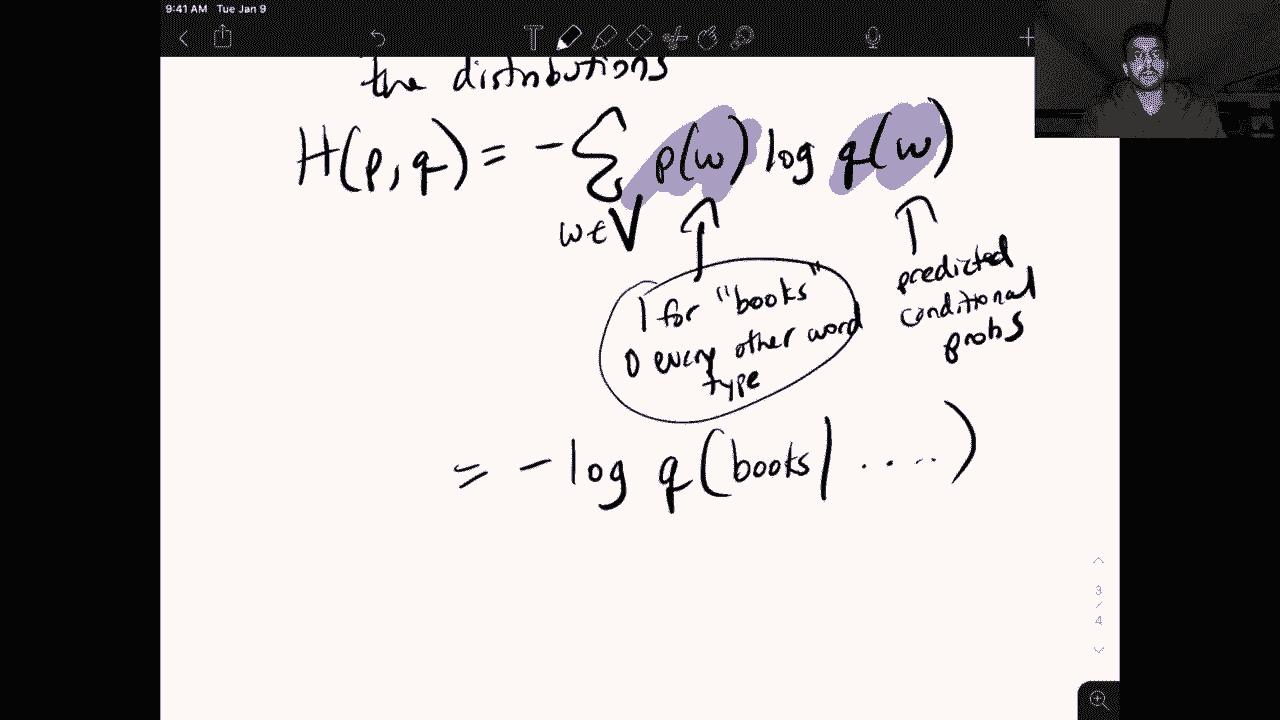 9:41 AM Tue Jan 9
the distributions
H(p,q) = - ∑ p(w) log q(w)
w ∈ V
1 for "books"
0 every other word
type
predicted
conditional
probs
= - log q(books| ....)
3
/
4